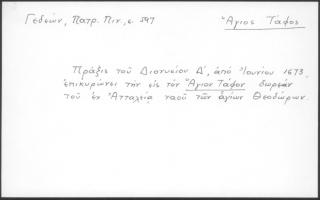 Γεδεών, Πατρ. Πιν., σ. 597
Ἅγιος Τάφος
Πρᾶξις τοῦ Διονυσίου Δ΄, ἀπό Ἰουνίου 1673,
ἐπικυρώνει τήν εἰς τόν Ἅγιον Τάφον δωρεάν
τοῦ ἐν Ἀτταλείᾳ ναοῦ τῶν ἁγίων Θεοδώρων.